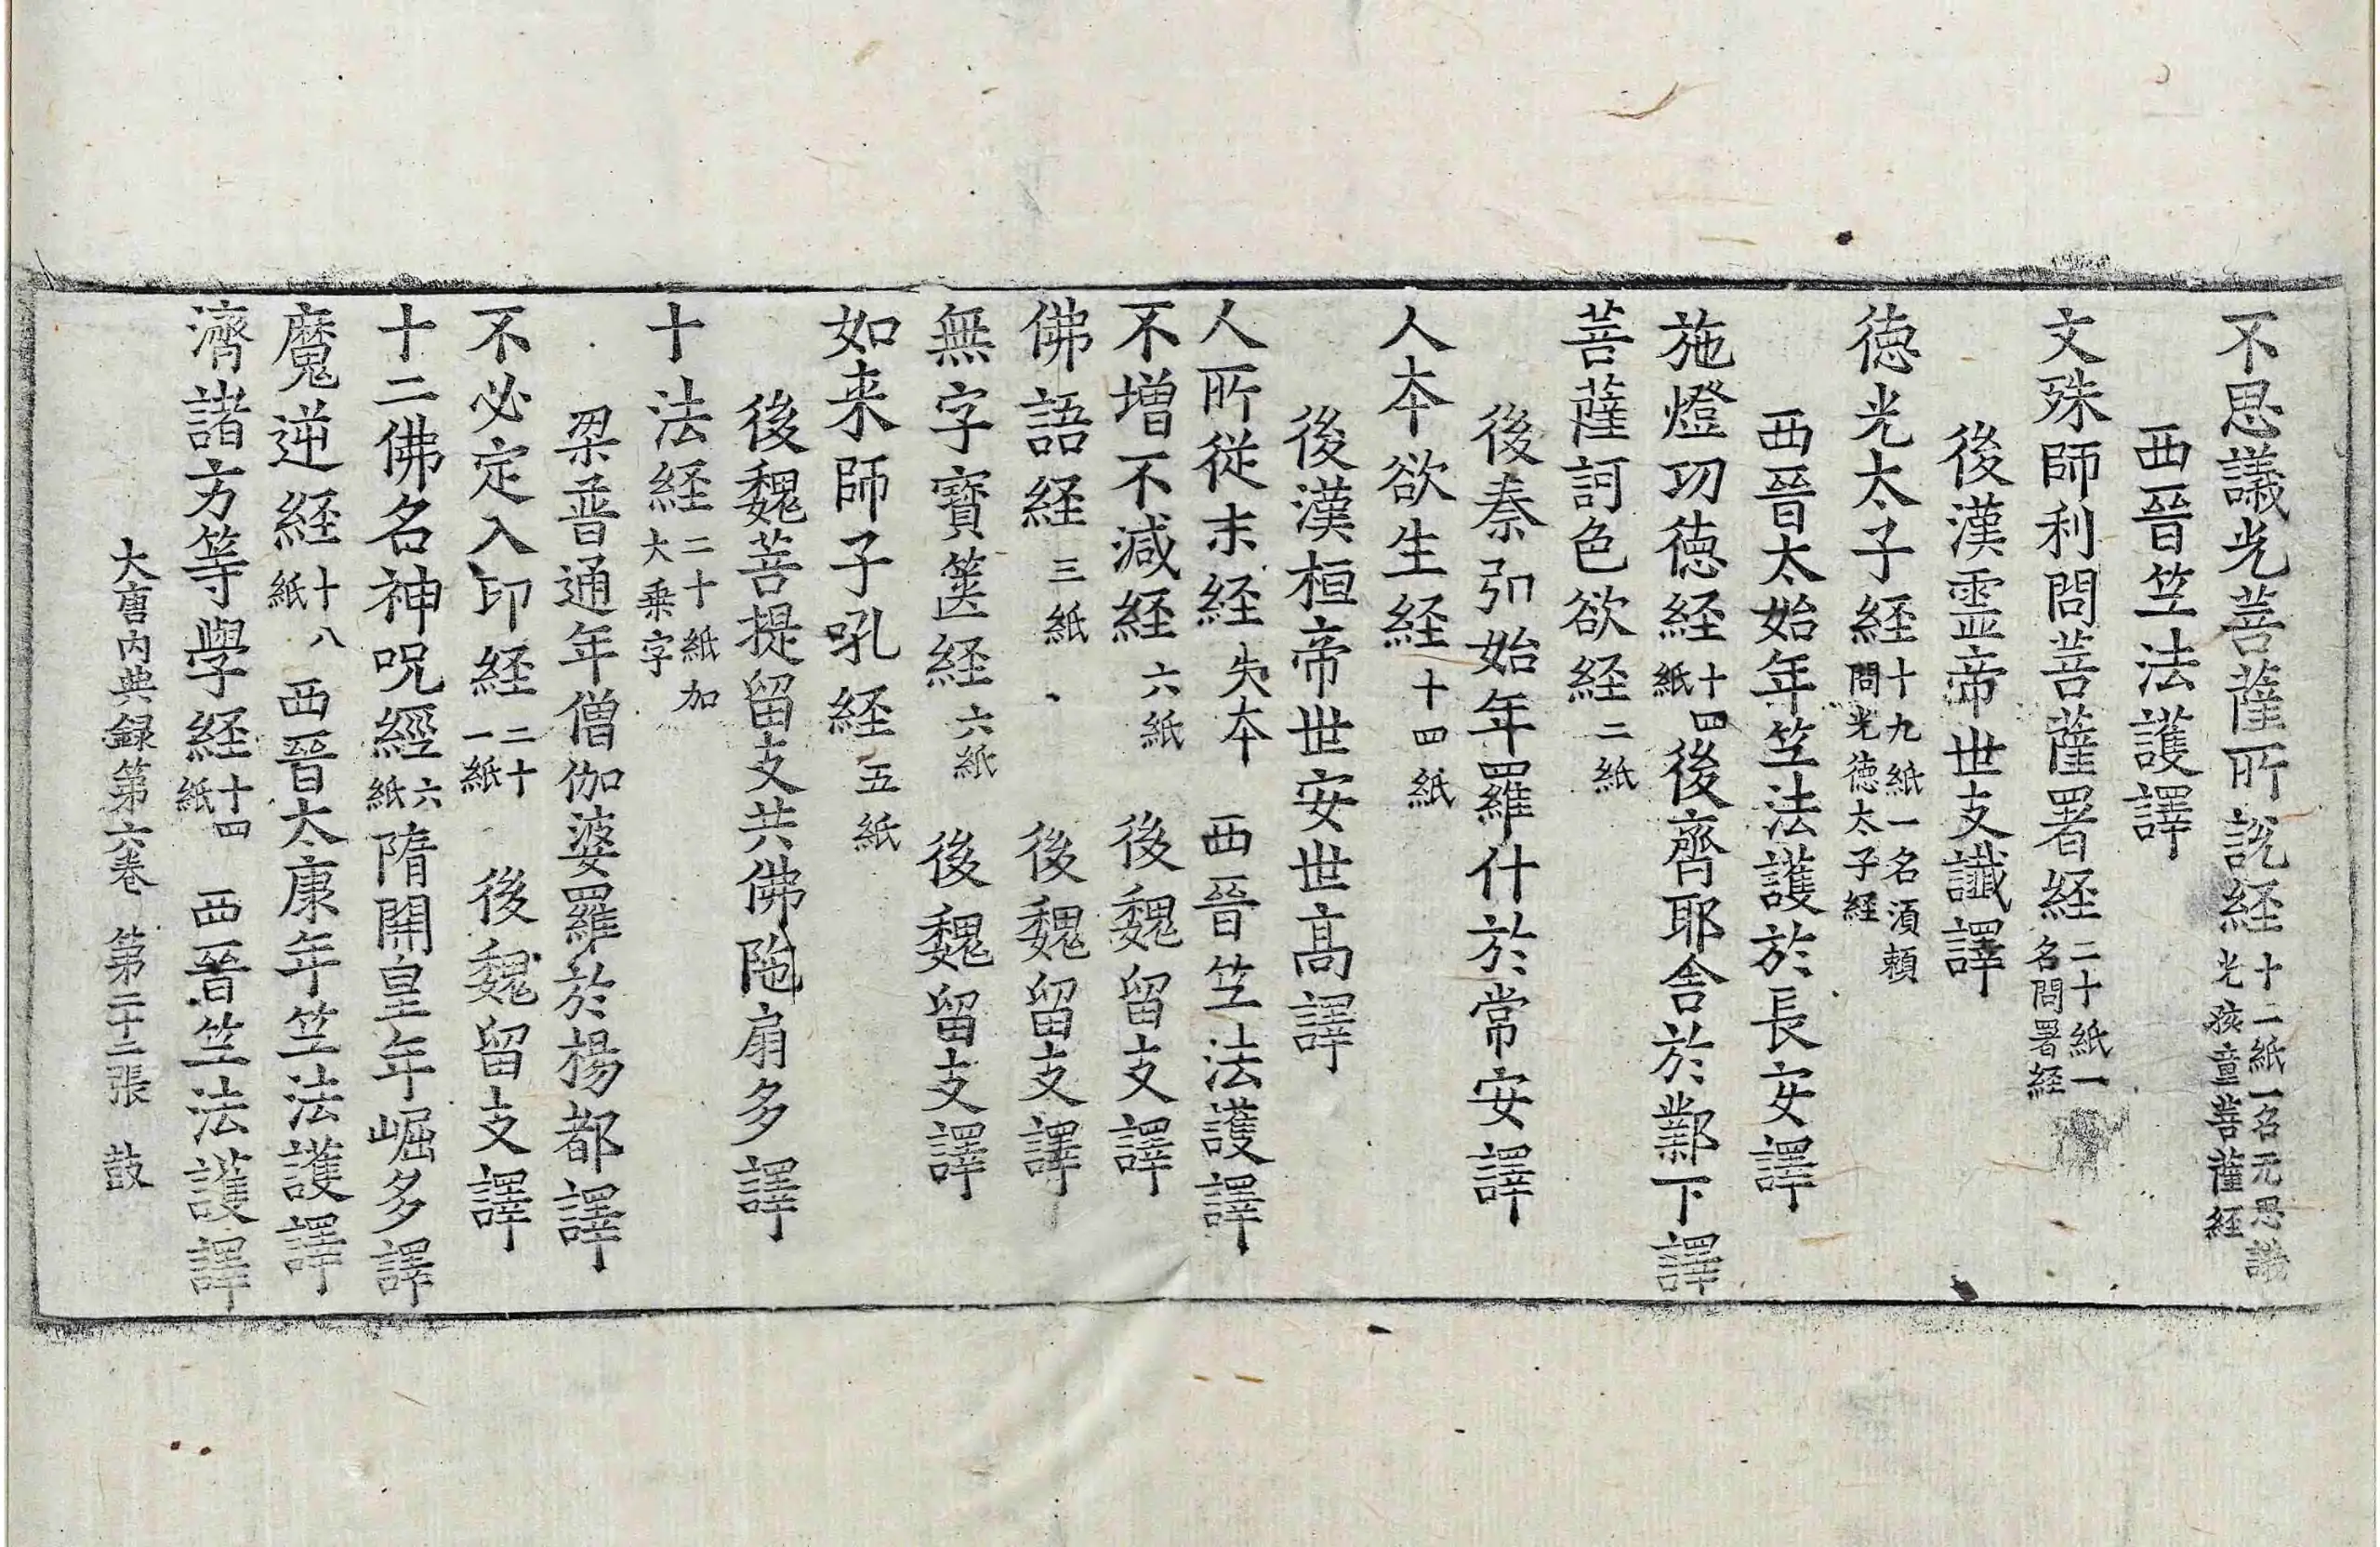 不思議光菩薩所說経十二紙一名无思議光孩童菩薩経
西晉竺法護譯
文殊師利問菩薩署経二十紙一名問署経
後漢靈帝世支讖譯
徳光太子経十九紙一名湏頼問光徳太子経
西晉太始年竺法護於長安譯
施燈㓛徳経十四紙後齊耶舎於鄴下譯
菩薩訶色欲経二紙
後秦弘始年羅什於常安譯
人夲欲生経十四紙
後漢桓帝世安世髙譯
人所從末経失夲 西晉竺法護譯
不增不減経六紙 後魏留支譯
佛語経三紙 後魏留支譯
無字寶篋経六紙 後魏留支譯
如来師子吼経五紙
後魏菩提留支共佛陁扇多譯
十法経二十紙加大乗字
梁普通年僧伽婆羅於楊都譯
不必定入印経二十一紙 後魏留支譯
十二佛名神呪經六紙隋開皇年崛多譯
魔逆経十八紙 西晉太康年竺法護譯
濟諸方等學経十四紙 西晉竺法護譯
大唐内典録第六卷 第二十二張 鼓